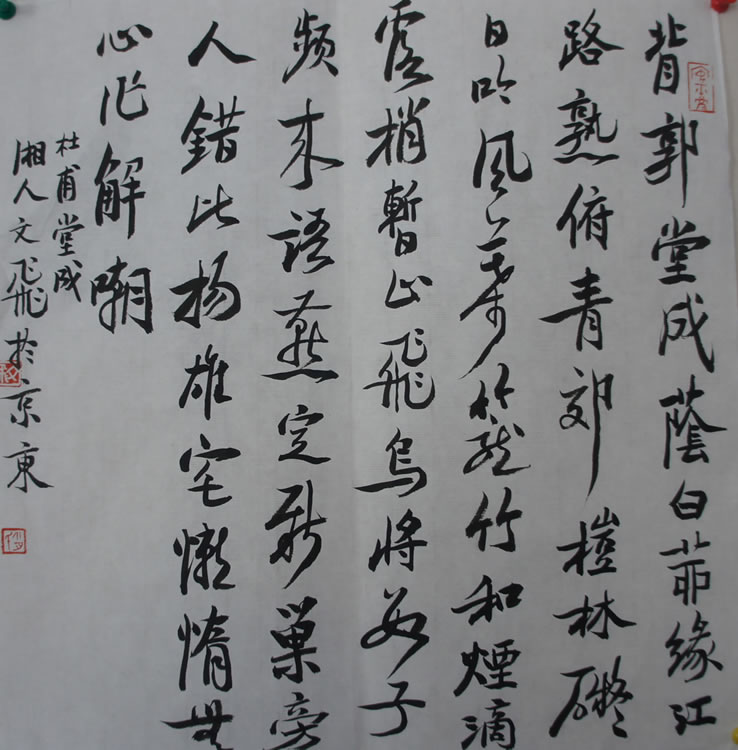 背郭堂成蔭白茆緣江
路熟俯青郊榿林礙
日吟風葉籠竹和煙滴
露梢暫止飛烏將数子
頻来語燕定新巢旁
人錯比揚雄宅懶惰無
心作解嘲
杜甫堂成
湘人文飛於京東